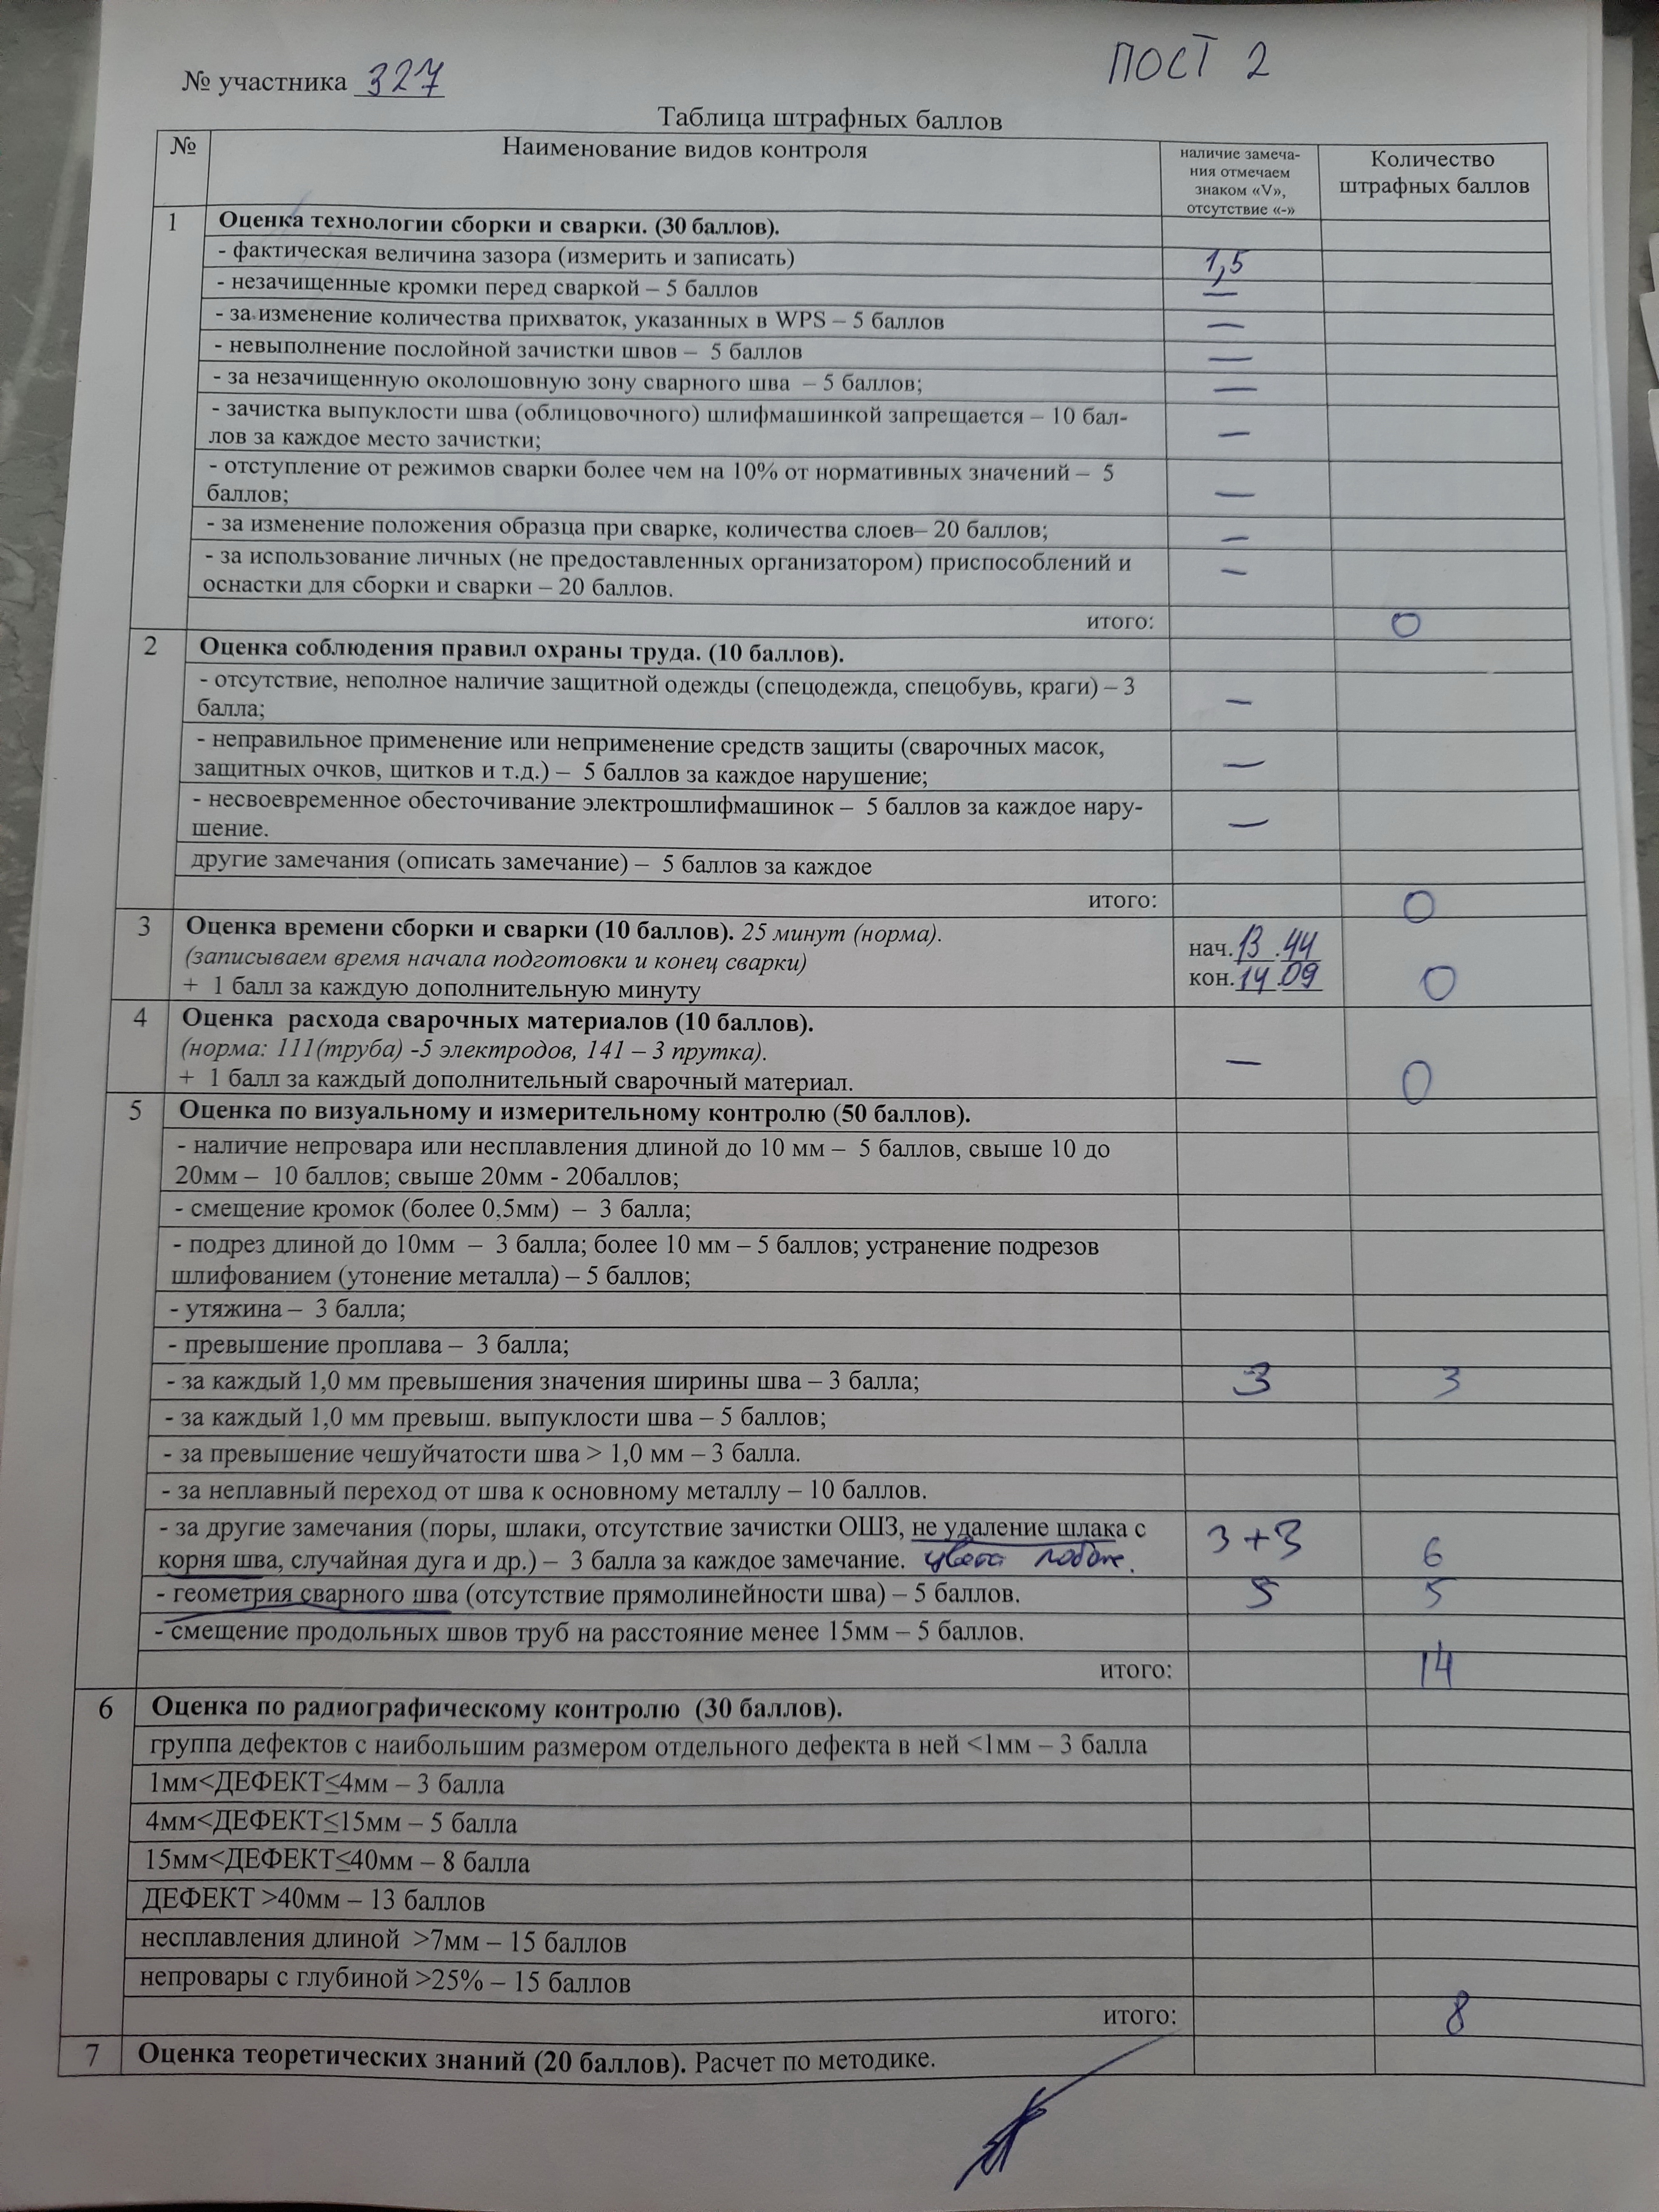 ПОСТ 2
№ участника 327
Таблица штрафных баллов
№
Наименование видов контроля
наличие замеча-
ния отмечаем
знаком «V»,
отсутствие «-»
Количество
штрафных баллов
1 Оценка технологии сборки и сварки. (30 баллов).
- фактическая величина зазора (измерить и записать) 1,5
- незачищенные кромки перед сваркой – 5 баллов —
- за изменение количества прихваток, указанных в WPS – 5 баллов —
- невыполнение послойной зачистки швов – 5 баллов —
- за незачищенную околошовную зону сварного шва – 5 баллов; —
- зачистка выпуклости шва (облицовочного) шлифмашинкой запрещается – 10 бал-
лов за каждое место зачистки; —
- отступление от режимов сварки более чем на 10% от нормативных значений – 5
баллов; —
- за изменение положения образца при сварке, количества слоев– 20 баллов; —
- за использование личных (не предоставленных организатором) приспособлений и —
оснастки для сборки и сварки – 20 баллов.
итого: 0
2 Оценка соблюдения правил охраны труда. (10 баллов).
- отсутствие, неполное наличие защитной одежды (спецодежда, спецобувь, краги) – 3
балла; —
- неправильное применение или неприменение средств защиты (сварочных масок,
защитных очков, щитков и т.д.) – 5 баллов за каждое нарушение; —
- несвоевременное обесточивание электрошлифмашинок – 5 баллов за каждое нару-
шение. —
другие замечания (описать замечание) – 5 баллов за каждое
итого: 0
3 Оценка времени сборки и сварки (10 баллов). 25 минут (норма). нач. 13 . 44
(записываем время начала подготовки и конец сварки) кон. 14 . 09 0
+ 1 балл за каждую дополнительную минуту
4 Оценка расхода сварочных материалов (10 баллов).
(норма: 111(труба) -5 электродов, 141 – 3 прутка). —
+ 1 балл за каждый дополнительный сварочный материал. 0
5 Оценка по визуальному и измерительному контролю (50 баллов).
- наличие непровара или несплавления длиной до 10 мм – 5 баллов, свыше 10 до
20мм – 10 баллов; свыше 20мм - 20баллов;
- смещение кромок (более 0,5мм) – 3 балла;
- подрез длиной до 10мм – 3 балла; более 10 мм – 5 баллов; устранение подрезов
шлифованием (утонение металла) – 5 баллов;
- утяжина – 3 балла;
- превышение проплава – 3 балла;
- за каждый 1,0 мм превышения значения ширины шва – 3 балла; 3 3
- за каждый 1,0 мм превыш. выпуклости шва – 5 баллов;
- за превышение чешуйчатости шва > 1,0 мм – 3 балла.
- за неплавный переход от шва к основному металлу – 10 баллов.
- за другие замечания (поры, шлаки, отсутствие зачистки ОШЗ, не удаление шлака с 3+3
корня шва, случайная дуга и др.) – 3 балла за каждое замечание. цвета побеж. 6
- геометрия сварного шва (отсутствие прямолинейности шва) – 5 баллов. 5 5
- смещение продольных швов труб на расстояние менее 15мм – 5 баллов.
итого: 14
6 Оценка по радиографическому контролю (30 баллов).
группа дефектов с наибольшим размером отдельного дефекта в ней <1мм – 3 балла
1мм<ДЕФЕКТ≤4мм – 3 балла
4мм<ДЕФЕКТ≤15мм – 5 балла
15мм<ДЕФЕКТ≤40мм – 8 балла
ДЕФЕКТ >40мм – 13 баллов
несплавления длиной >7мм – 15 баллов
непровары с глубиной >25% – 15 баллов
итого: 8
7 Оценка теоретических знаний (20 баллов). Расчет по методике.